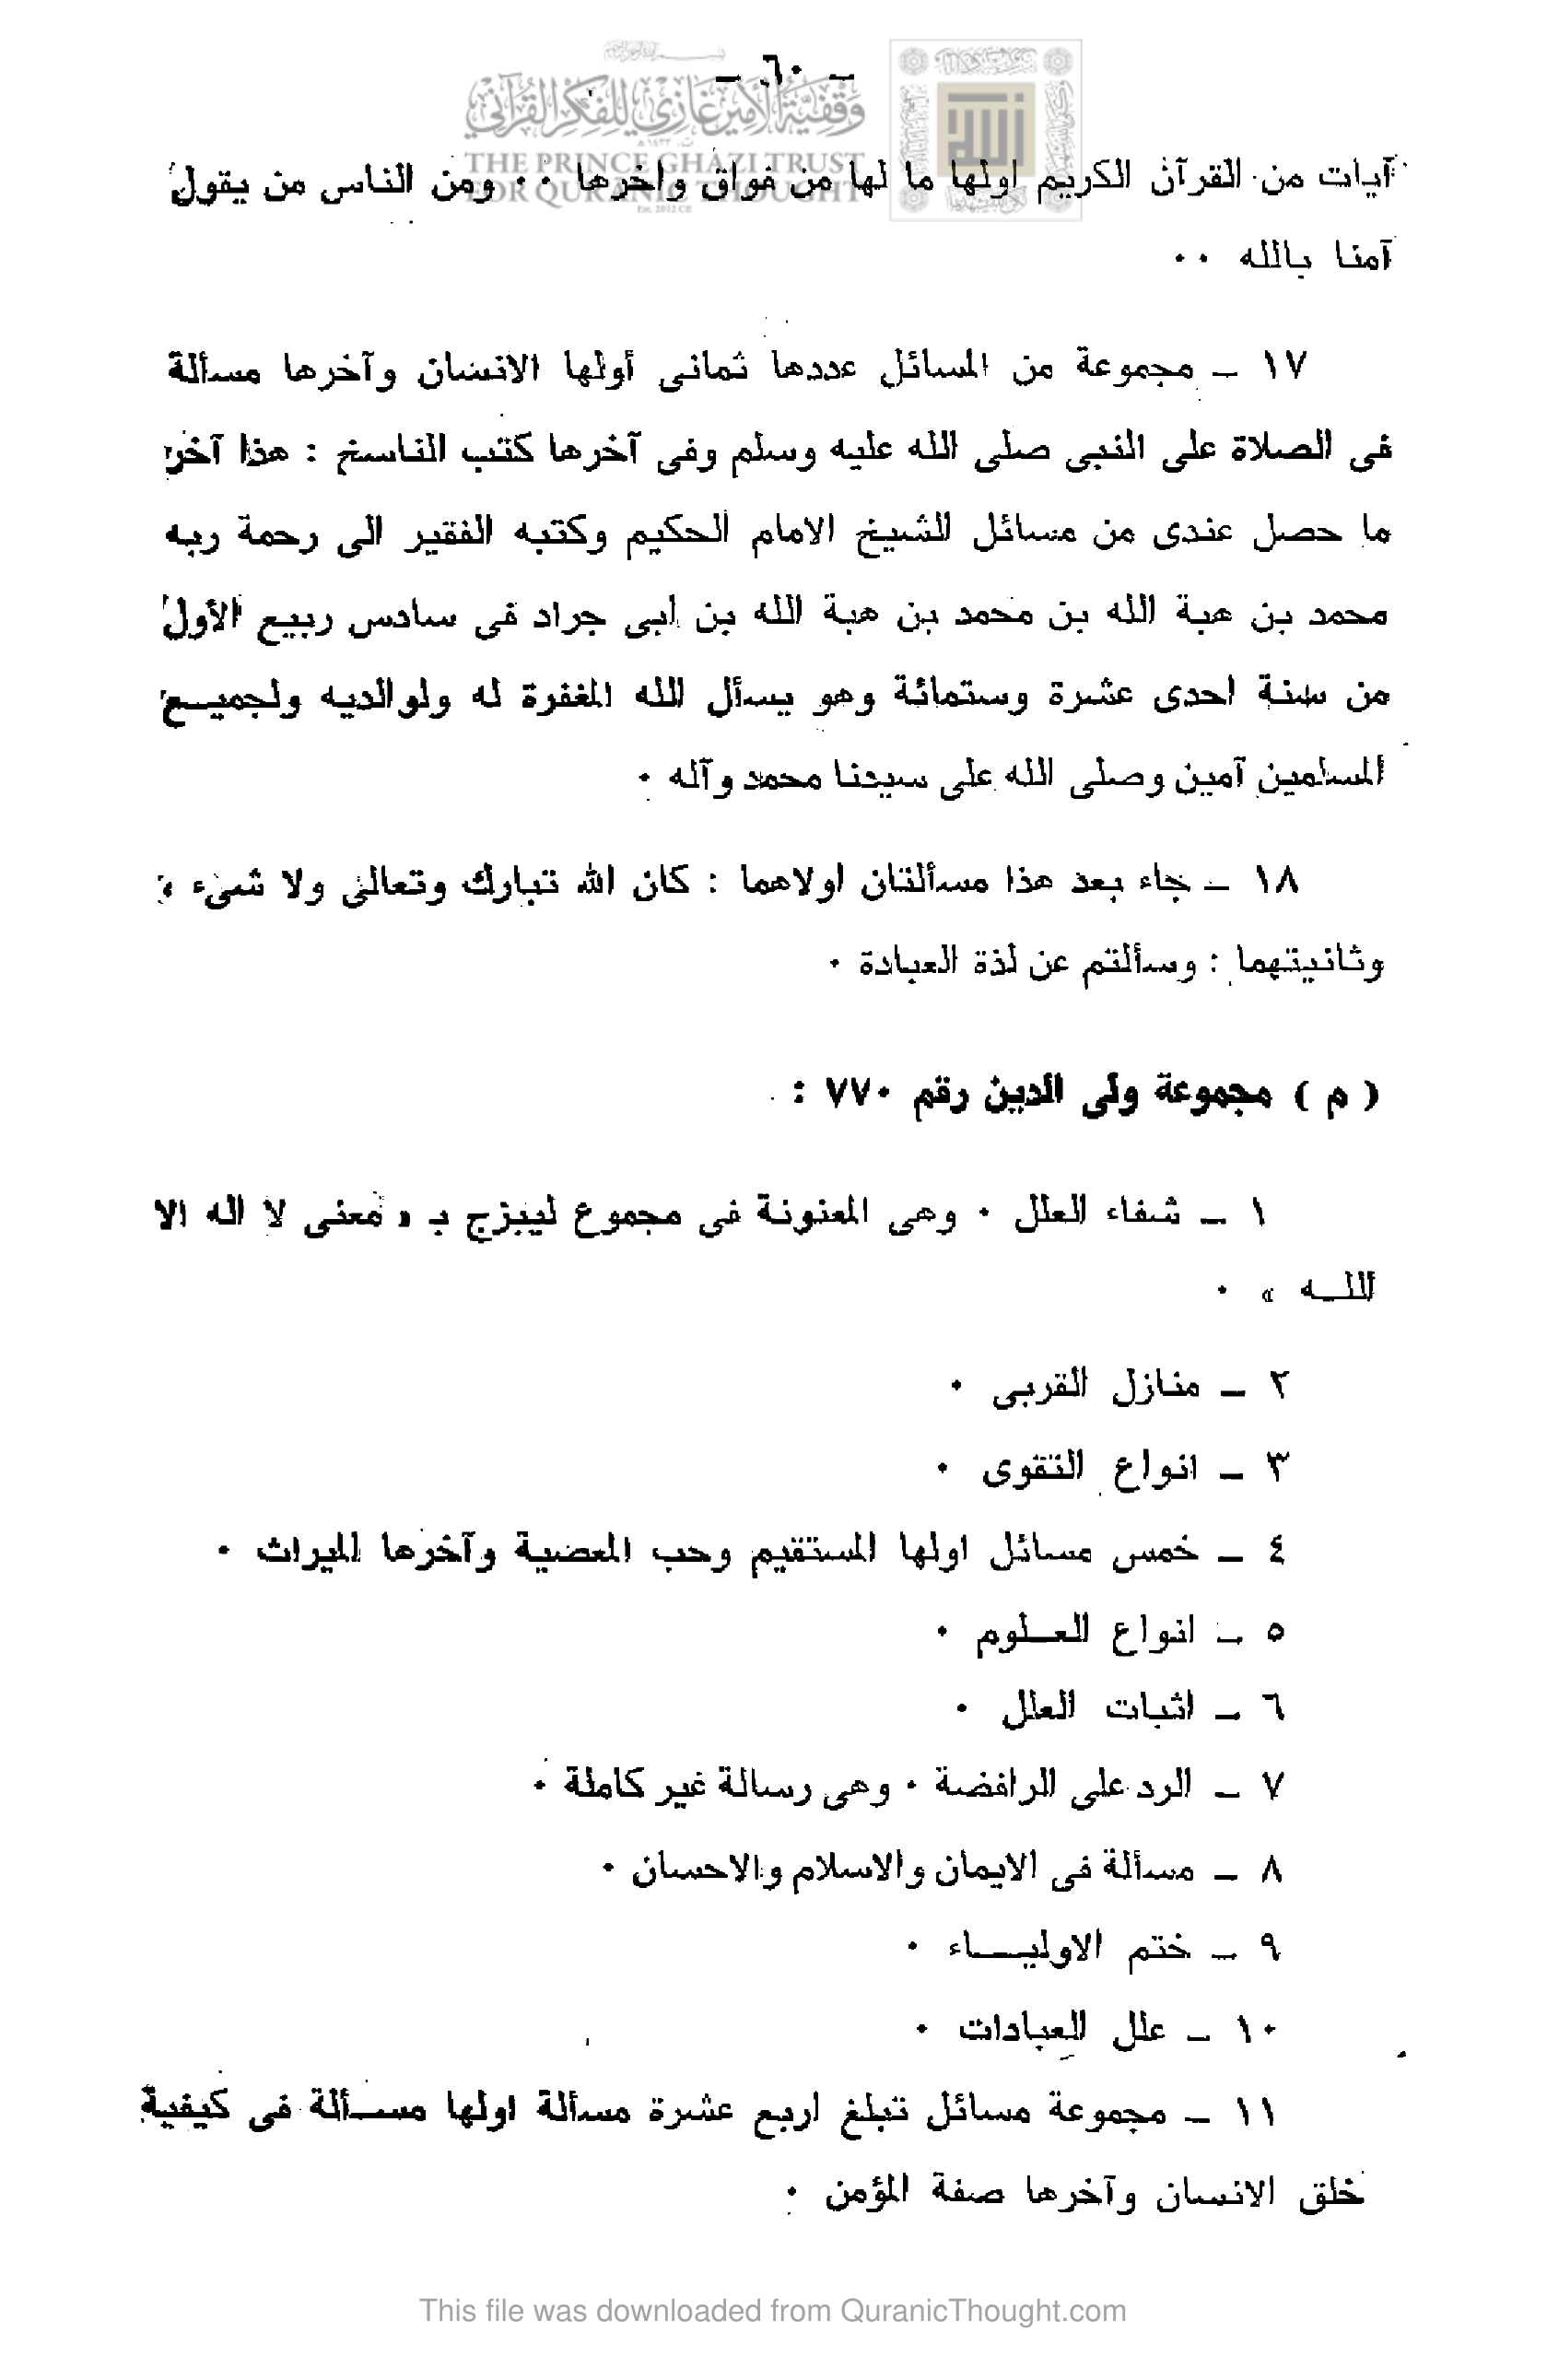 – ٦٠ –
THE PRINCE GHAZI TRUST
FOR QURANIC THOUGHT
وقفية الأمير غازي للفكر القرآني
آيات من القرآن الكريم اولها ما لها من فواق واخرها ٠٠ ومن الناس من يقول
آمنا بالله ٠٠
١٧ – مجموعة من المسائل عددها ثمانى أولها الانسان وآخرها مسألة
فى الصلاة على النبى صلى الله عليه وسلم وفى آخرها كتب الناسخ : هذا آخر
ما حصل عندى من مسائل الشيخ الامام الحكيم وكتبه الفقير الى رحمة ربه
محمد بن هبة الله بن محمد بن هبة الله بن ابى جراد فى سادس ربيع الأول
من سنة احدى عشرة وستمائة وهو يسأل الله المغفرة له ولوالديه ولجميـع
المسلمين آمين وصلى الله على سيدنا محمد وآله ٠
١٨ – جاء بعد هذا مسألتان اولاهما : كان الله تبارك وتعالى ولا شىء ؛
وثانيتهما : وسألتم عن لذة العبادة ٠
( م ) مجموعة ولى الدين رقم ٧٧٠ :
١ – شفاء العلل ٠ وهى المعنونة فى مجموع ليبزج بـ « معنى لا اله الا
اللـه » ٠
٢ – منازل القربى ٠
٣ – انواع التقوى ٠
٤ – خمس مسائل اولها المستقيم وحب المعضية وآخرها الميراث ٠
٥ – انواع العـلوم ٠
٦ – اثبات العلل ٠
٧ – الرد على الرافضة ٠ وهى رسالة غير كاملة ٠
٨ – مسألة فى الايمان والاسلام والاحسان ٠
٩ – ختم الاوليـاء ٠
١٠ – علل العبادات ٠
١١ – مجموعة مسائل تبلغ اربع عشرة مسألة اولها مسـألة فى كيفية
خلق الانسان وآخرها صفة المؤمن ٠
This file was downloaded from QuranicThought.com